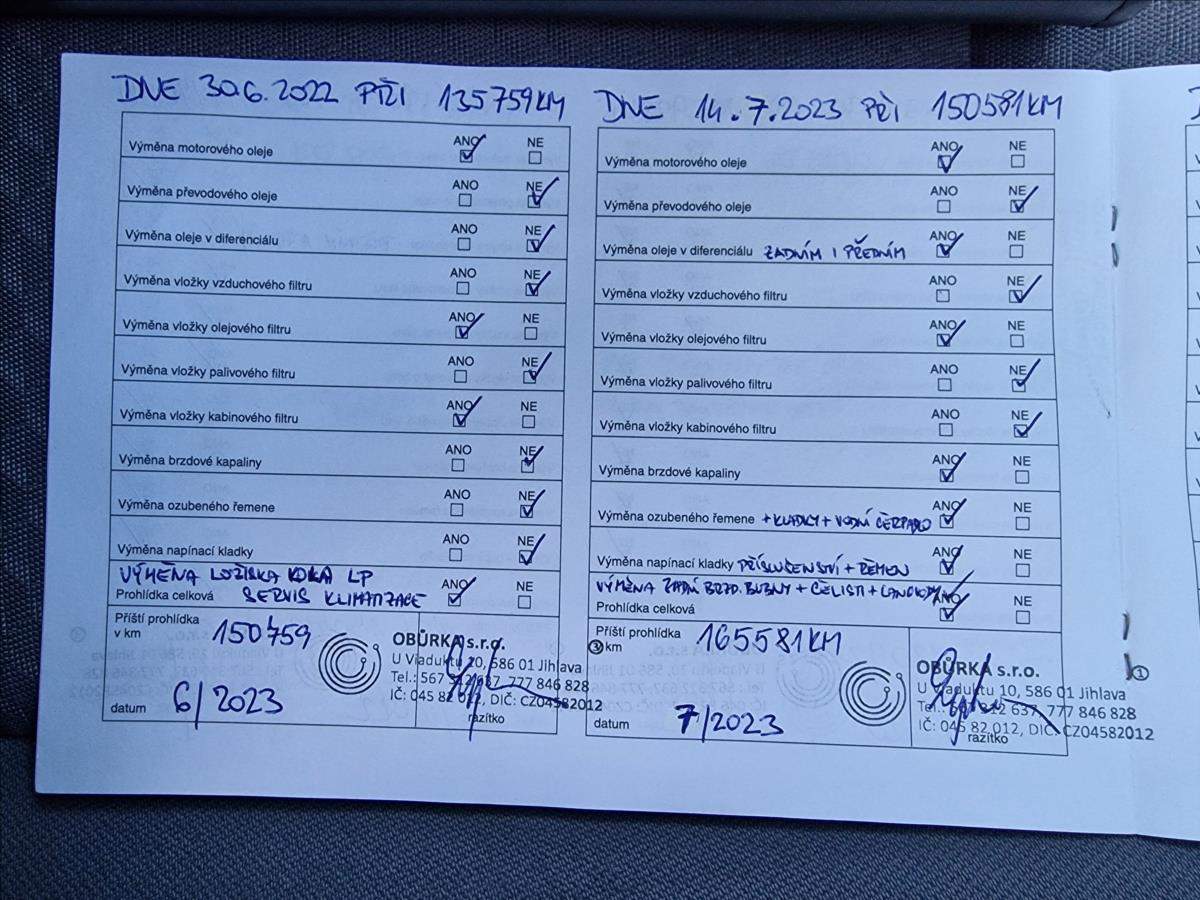 DNE 30.6.2022 PŘI 135759KM
Výměna motorového oleje ANO NE
Výměna převodového oleje ANO NE
Výměna oleje v diferenciálu ANO NE
Výměna vložky vzduchového filtru ANO NE
Výměna vložky olejového filtru ANO NE
Výměna vložky palivového filtru ANO NE
Výměna vložky kabinového filtru ANO NE
Výměna brzdové kapaliny ANO NE
Výměna ozubeného řemene ANO NE
Výměna napínací kladky ANO NE
VÝMĚNA LOŽISKA KOLA LP
Prohlídka celková SERVIS KLIMATIZACE ANO NE
Příští prohlídka
v km 150759
datum 6/2023
OBŮRKA s.r.o.
U Viaduktu 10, 586 01 Jihlava
Tel.: 567 312 637, 777 846 828
IČ: 045 82 012, DIČ: CZ04582012
razítko
DNE 14.7.2023 PŘI 150581KM
Výměna motorového oleje ANO NE
Výměna převodového oleje ANO NE
Výměna oleje v diferenciálu ZADNÍM I PŘEDNÍM ANO NE
Výměna vložky vzduchového filtru ANO NE
Výměna vložky olejového filtru ANO NE
Výměna vložky palivového filtru ANO NE
Výměna vložky kabinového filtru ANO NE
Výměna brzdové kapaliny ANO NE
Výměna ozubeného řemene +KLADKY+VODNÍ ČERPADLO ANO NE
Výměna napínací kladky PŘÍSLUŠENSTVÍ + ŘEMEN ANO NE
VÝMĚNA ZADNÍ BRZD. BUBNY + ČELISTI + LANOVODY
Prohlídka celková ANO NE
Příští prohlídka
km 165581KM
datum 7/2023
OBŮRKA s.r.o.
U Viaduktu 10, 586 01 Jihlava
Tel.: 567 312 637, 777 846 828
IČ: 045 82 012, DIČ: CZ04582012
razítko